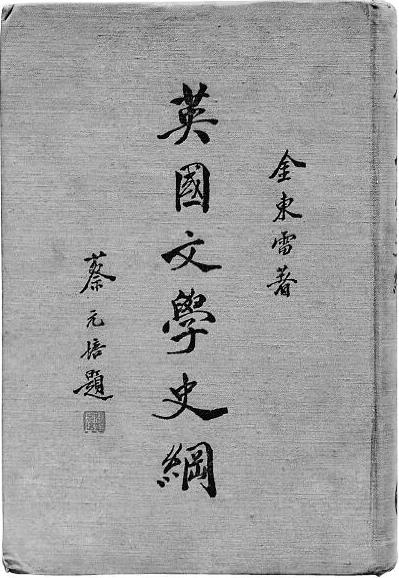 金東雷著
英國文學史綱
蔡元培題